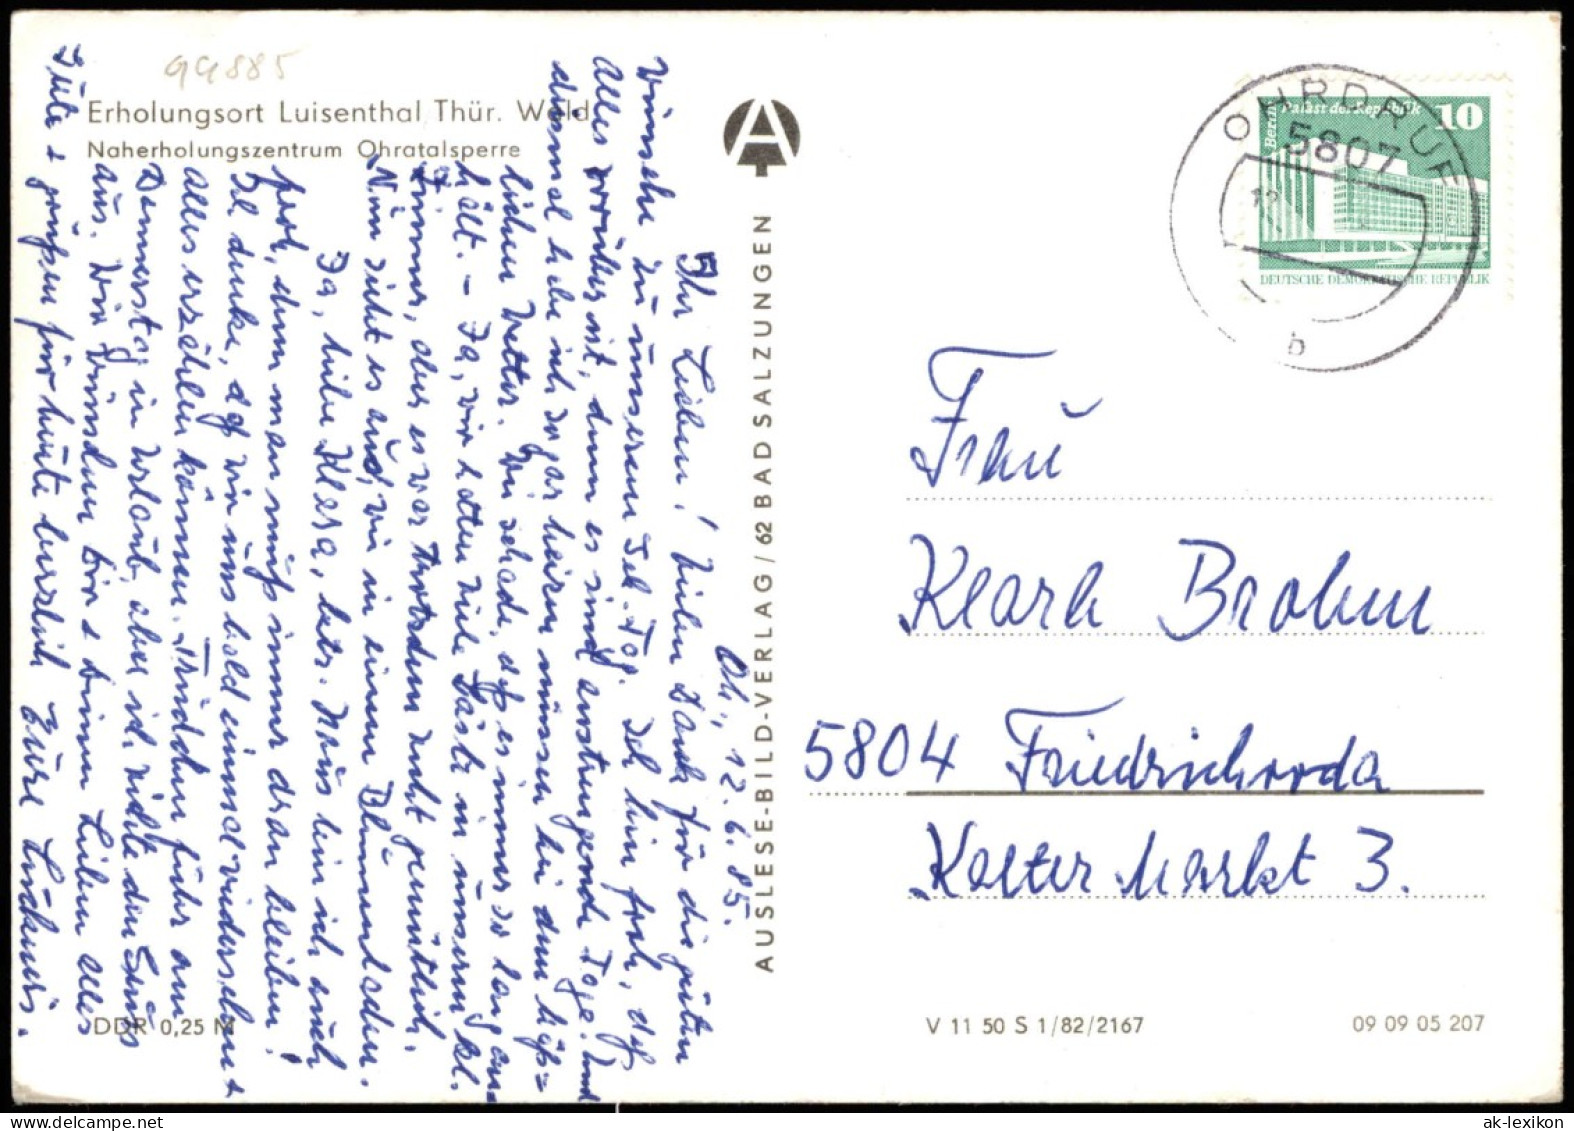 99885
Erholungsort Luisenthal Thür. Wald
Naherholungszentrum Ohratalsperre
Oh., 12.6.85.
Ihr Lieben! Vielen Dank für die guten
Wünsche zu unserem Feb. Tag. Ich bin froh, daß
alles vorüber ist, denn es sind anstrengende Tage. Und
einmal habe ich sogar heizen müssen bei dem häß=
lichen Wetter. Wie schade, daß es immer so lange
hält. – Ja, wir hatten viele Gäste in unserem kl.
Zimmer, aber es war trotzdem recht gemütlich.
Nun sieht es aus, wie in einem Blumenladen.
Ja, liebe Klara, betr. Haus bin ich auch
froh, denn man muß immer dran bleiben!
Ich denke, daß wir uns bald einmal wiedersehen +
alles erzählen können. Trudchen fuhr am
Donnerstag in Urlaub, aber ich richte den Gruß
aus. Wir wünschen Dir + Deinen Lieben alles
Gute + grüßen für heute herzlich Eure
DDR 0,25 M
AUSLESE-BILD-VERLAG / 62 BAD SALZUNGEN
Berlin
Palast der Republik
10
DEUTSCHE DEMOKRATISCHE REPUBLIK
OHRDRUF
5807
12
b
Frau
Klara Brohm
5804 Friedrichroda
Kalter Markt 3.
V 11 50 S 1/82/2167
09 09 05 207
ak-lexikon